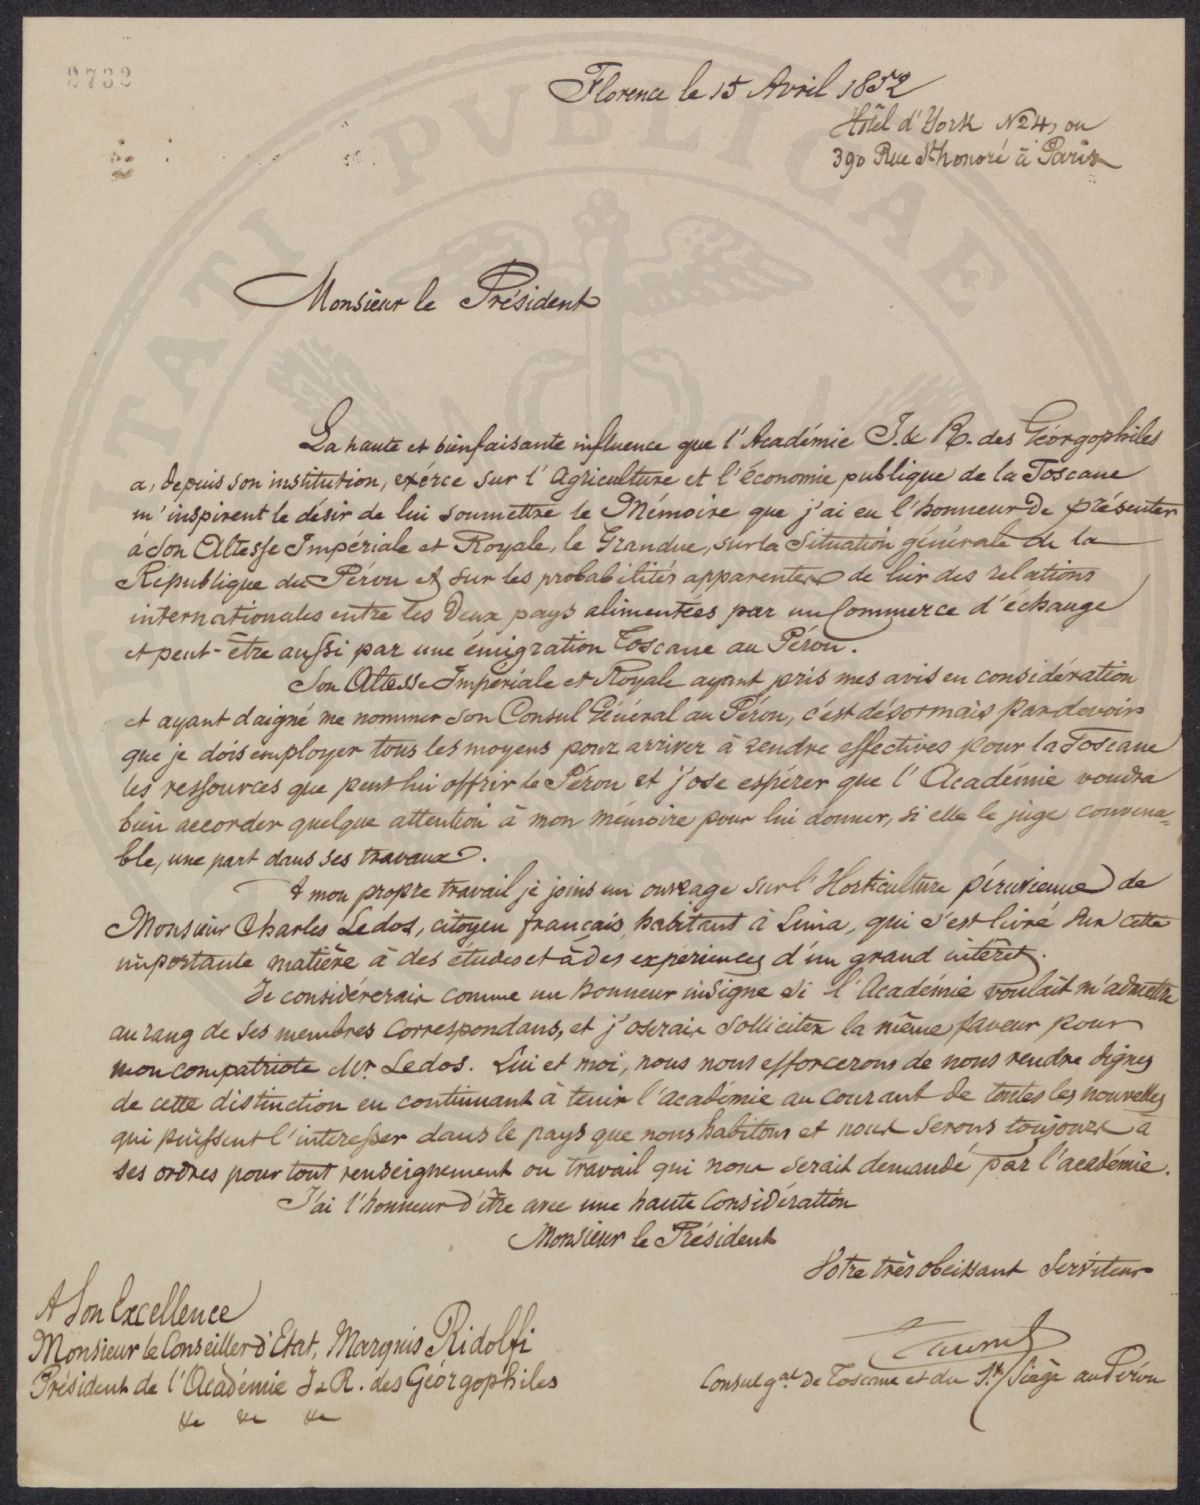 2732
Florence le 15 Avril 1852
Hôtel d'York N24, ou
390 Rue St honoré à Paris
Monsieur le Président
La haute et bienfaisante influence que l'Académie I. & R. des Géorgophiles
a, depuis son institution, exérce sur l'Agriculture et l'économie publique de la Toscane
m'inspirent le désir de lui soumettre le Mémoire que j'ai eu l'honneur De présenter
à Son Altesse Impériale et Royale, le Granduc, sur la Situation générale de la
République du Pérou et sur les probabilités apparentes de lier des relations
internationales entre les Deux pays alimentées par un Commerce d'échange
et peut-être aussi par une émigration Toscane au Pérou.
Son Altesse Impériale et Royale ayant pris mes avis en considération
et ayant daigné me nommer son Consul Général au Pérou, c'est désormais par devoir
que je dois employer tous les moyens pour arriver à rendre effectives pour la Toscane
les ressources que peut lui offrir le Pérou et j'ose espérer que l'Académie voudra
bien accorder quelque attention à mon mémoire pour lui donner, si elle le juge convena=
ble, une part dans ses travaux.
A mon propre travail je joins un ouvrage sur l'Horticulture péruvienne de
Monsieur Charles Ledos, citoyen français habitant à Lima, qui s'est livré sur cette
importante matière à des études et à Des expériences d'un grand intérêt.
Je considérerais comme un honneur insigne si l'Académie voulait m'admettre
au rang de ses membres correspondans, et j'oserais solliciter la même faveur pour
mon compatriote Mr. Ledos. Lui et moi, nous nous efforcerons de nous rendre dignes
de cette distinction en continuant à tenir l'académie au courant de toutes les nouvelles
qui puissent l'interesser dans le pays que nous habitons et nous serons toujours à
ses ordres pour tout renseignement ou travail qui nous serait demandé par l'académie.
J'ai l'honneur d'être avec une haute Considération
Monsieur le Président
Votre très obeissant Serviteur
Consul gal De Toscane et du St. Siège au Pérou
A Son Excellence
Monsieur le Conseiller d'Etat, Marquis Ridolfi
Président de l'Académie I & R. des Géorgophiles
&c &c &c